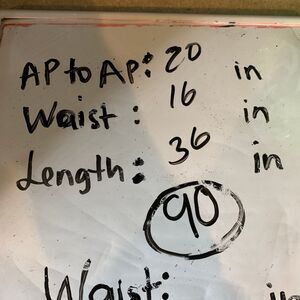 AP to AP: 20 in
Waist: 16 in
Length: 36 in
90
Waist: